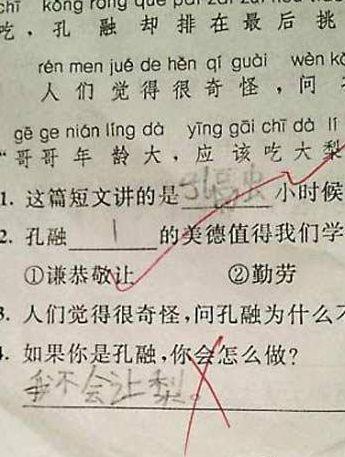 chī kǒng róng què pái zài zuì hòu
吃，孔融却排在最后挑
rén men jué de hěn qí guài wèn kǒ
人们觉得很奇怪，问
gē ge nián líng dà yīng gāi chī dà lí
“哥哥年龄大，应该吃大梨
1. 这篇短文讲的是孔融虫小时候
2. 孔融 1 的美德值得我们学
①谦恭敬让 ②勤劳
3. 人们觉得很奇怪，问孔融为什么不
4. 如果你是孔融，你会怎么做？
我不会让梨。